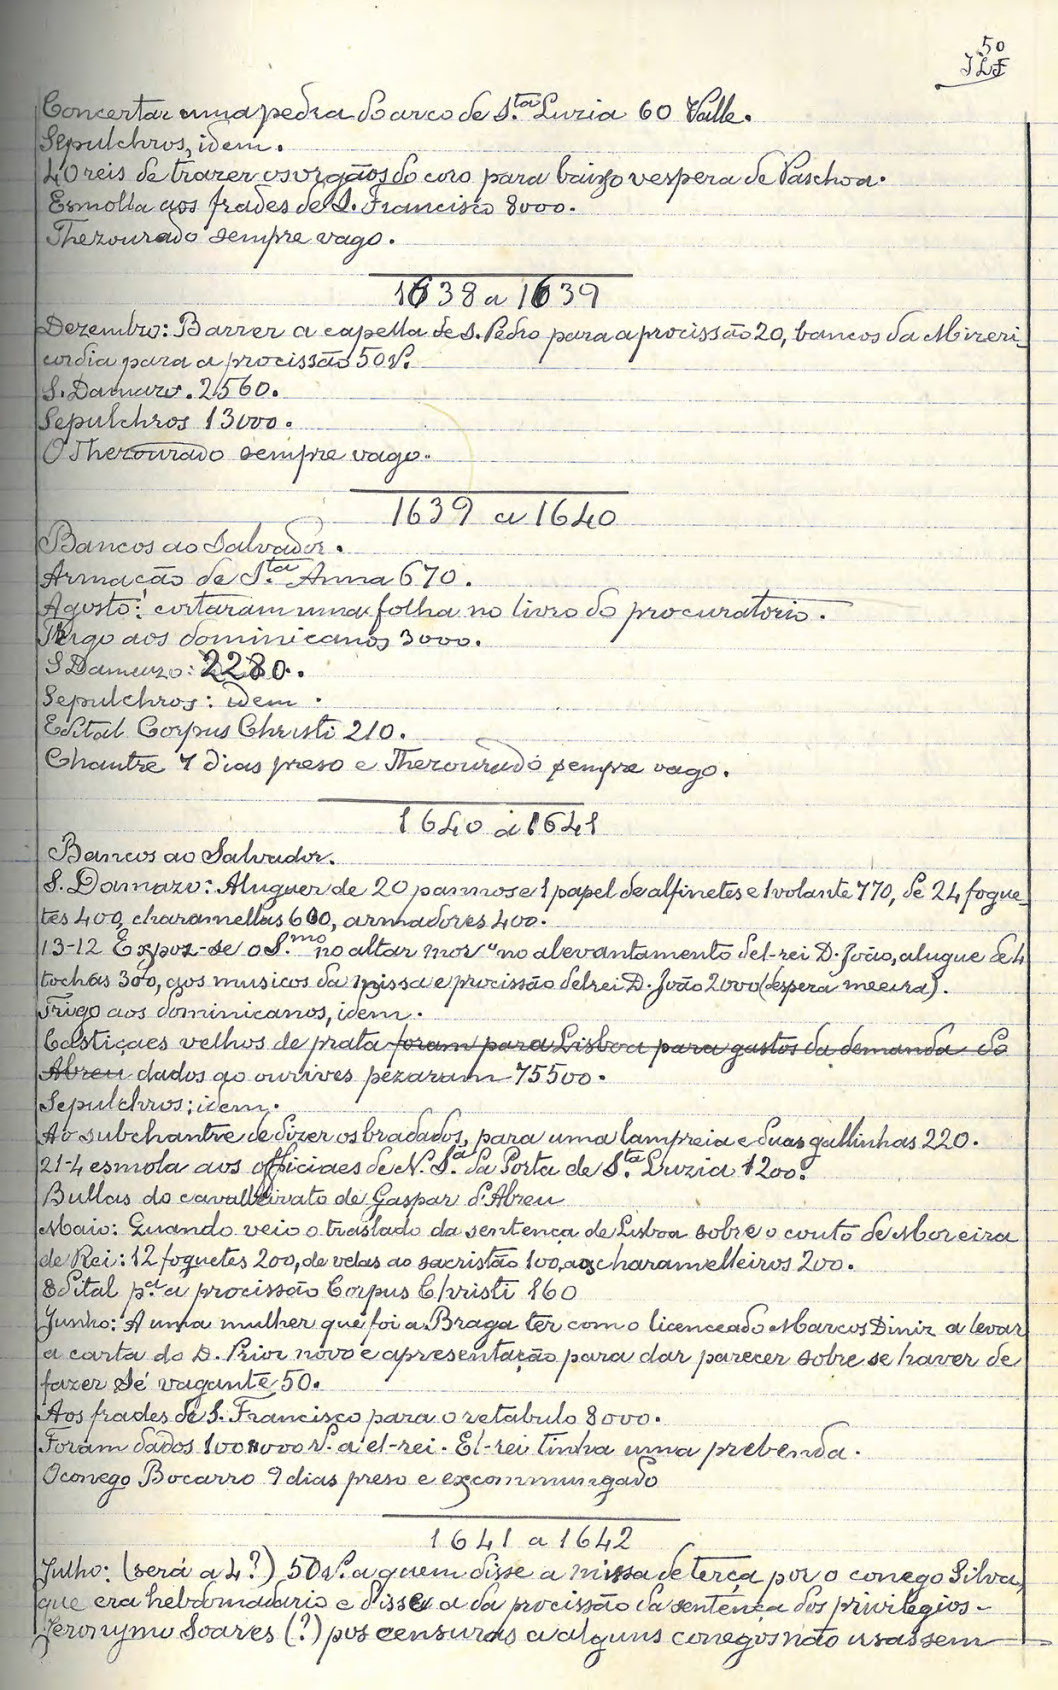 50
JLF
Concertar uma pedra do arco de S.ta Luzia 60 Valle.
Sepulchros, idem.
40 reis de trazer os orgãos do coro para baixo vespera de Paschoa.
Esmolla aos frades de S. Francisco 8000.
Thezourado sempre vago.
1638 a 1639
Dezembro: Barrer a capella de S. Pedro para a procissão 20, bancos da Mizeri-
cordia para a procissão 50 r.s
S. Damazo. 2560.
Sepulchros 13000.
O Thezourado sempre vago.
1639 a 1640
Bancos ao Salvador.
Armação de S.ta Anna 670.
Agosto: cortaram uma folha no livro do procuratorio.
Trigo aos dominicanos 3000.
S Damazo: 2280.
Sepulchros: idem.
Edital Corpus Christi 210.
Chantre 7 dias preso e Thezourado sempre vago.
1640 a 1641
Bancos ao Salvador.
S. Damazo: Aluguer de 20 pannos e 1 papel de alfinetes e 1 volante 770, de 24 fogue-
tes 400, charamellas 600, armadores 400.
13-12 Expoz-se o S.mo no altar mor "no alevantamento del-rei D. João, alugue de 4
tochas 300, aos musicos da missa e procissão delrei D. João 2000 (despeza meeira).
Trigo aos dominicanos, idem.
Castiçaes velhos de prata foram para Lisboa para gastos da demanda do
Abreu dados ao ourives pezaram 75500.
Sepulchros: idem.
Ao subchantre de dizer os bradados, para uma lampreia e duas gallinhas 220.
21-4 esmola aos officiaes de N. S.a da Porta de S.ta Luzia 1200.
Bullas do cavalleirato de Gaspar d'Abreu
Maio: Quando veio o traslado da sentença de Lisboa sobre o couto de Moreira
de Rei: 12 foguetes 200, de velas ao sacristão 100, aos charamelleiros 200.
Edital p.a a procissão Corpus Christi 160
Junho: A uma mulher que foi a Braga ter com o licenceado Marcos Diniz a levar
a carta do D. Prior novo e apresentação para dar parecer sobre se haver de
fazer Sé vagante 50.
Aos frades de S. Francisco para o retabulo 8000.
Foram dados 100 000 r.s a el-rei. El-rei tinha uma prebenda.
O conego Bocarro 9 dias preso e excommungado
1641 a 1642
Julho: (será a 4?) 50 r.s a quem disse a missa de terça por o conego Silva,
que era hebdomadario e disse a da procissão da sentença dos privilegios -
Jeronymo Soares (?) pos censuras a alguns conegos não usassem